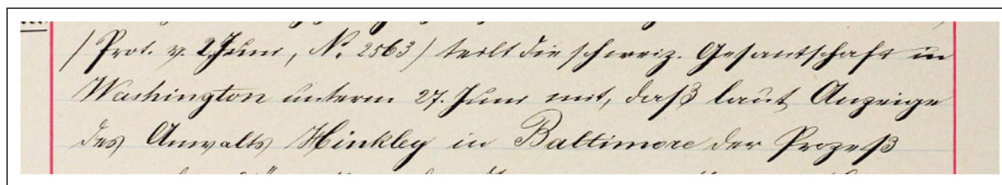 (Prot. v. 2. Juni, No. 2563) teilt die schweiz. Gesantschaft in
Washington unterm 27. Juni mit, daß laut Anzeige
des Anwalts Hinkley in Baltimore der Prozeß